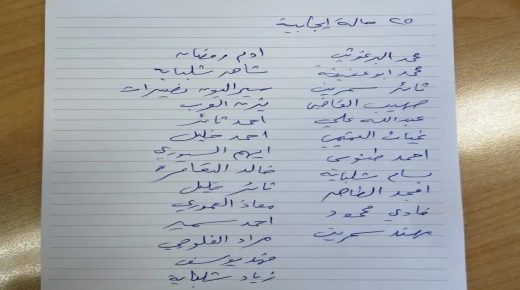 ٢٥ حالة إيجابية
محمد البرغوثي
محمد ابو عفيفة
ثائر سمرين
صهيب القاضي
عبدالله علي
غياث التميمي
احمد طنوس
بسام شلباية
امجد الطاهر
فادي محمود
مهند سمرين
ادم رمضان
شاهر شلباية
نصيرات
يزن العرب
احمد ثائر
احمد خليل
ايهم السيوري
خالد
ثائر خليل
معاذ العموري
احمد سمير
مراد الفلوجي
فهد يوسف
زياد شلباية